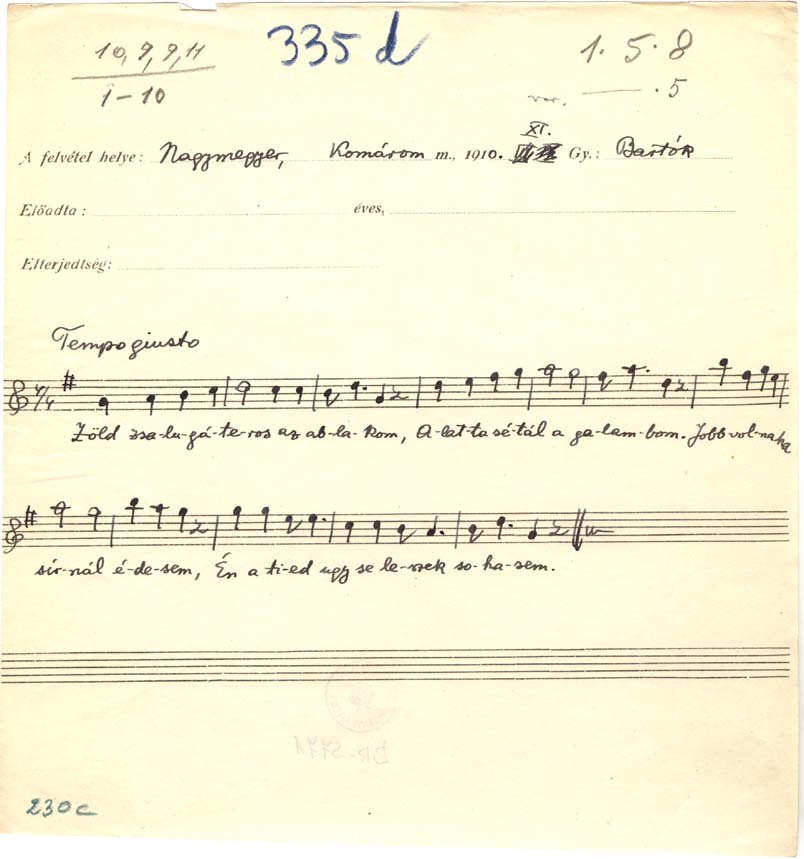 10, 9, 9, 11
1-10
335 d
1. 5. 8
var. — . 5
XI.
A felvétel helye: Nagymegyer, Komárom m., 1910. Gy.: Bartók
Előadta: éves,
Elterjedtség:
Tempo giusto
4/4
Zöld zsa-lu-gá-te-ros az ab-la-kom, A-lat-ta sé-tál a ga-lam-bom. Jobb vol-na ha
sír-nál é-de-sem, Én a ti-ed ugy se le-szek so-ha-sem.
230 c